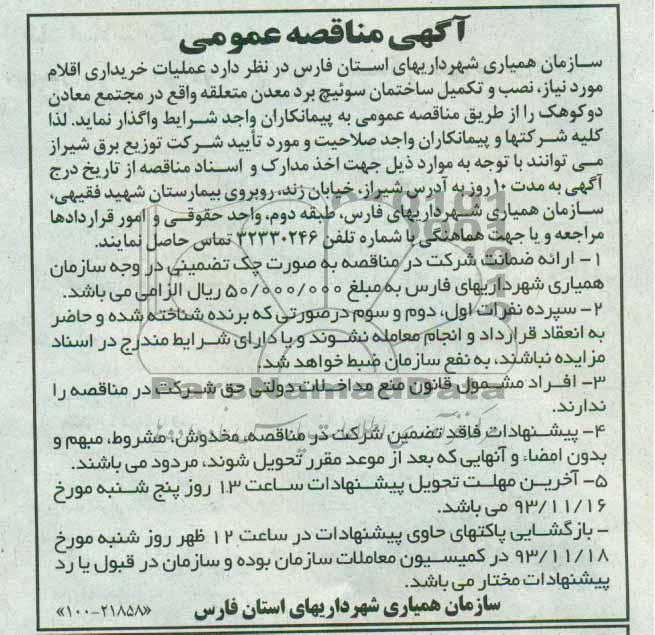 آگهی مناقصه عمومی
سازمان همیاری شهرداریهای استان فارس در نظر دارد عملیات خریداری اقلام
مورد نیاز، نصب و تکمیل ساختمان سوئیچ برد معدن متعلقه واقع در مجتمع معادن
دوکوهک را از طریق مناقصه عمومی به پیمانکاران واجد شرایط واگذار نماید. لذا
کلیه شرکتها و پیمانکاران واجد صلاحیت و مورد تأیید شرکت توزیع برق شیراز
می توانند با توجه به موارد ذیل جهت اخذ مدارک و اسناد مناقصه از تاریخ درج
آگهی به مدت ۱۰ روز به آدرس شیراز، خیابان زند، روبروی بیمارستان شهید فقیهی،
سازمان همیاری شهرداریهای فارس، طبقه دوم، واحد حقوقی و امور قراردادها
مراجعه و یا جهت هماهنگی با شماره تلفن ۳۲۳۳۰۲۴۶ تماس حاصل نمایند.
۱- ارائه ضمانت شرکت در مناقصه به صورت چک تضمینی در وجه سازمان
همیاری شهرداریهای فارس به مبلغ ۵۰/۰۰۰/۰۰۰ ریال الزامی می باشد.
۲- سپرده نفرات اول، دوم و سوم درصورتی که برنده شناخته شده و حاضر
به انعقاد قرارداد و انجام معامله نشوند و یا دارای شرایط مندرج در اسناد
مزایده نباشند، به نفع سازمان ضبط خواهد شد.
۳- افراد مشمول قانون منع مداخلات دولتی حق شرکت در مناقصه را
ندارند.
ParsNamadData
۴- پیشنهادات فاقد تضمین شرکت در مناقصه، مخدوش، مشروط، مبهم و
بدون امضاء و آنهایی که بعد از موعد مقرر تحویل شوند، مردود می باشند.
۵- آخرین مهلت تحویل پیشنهادات ساعت ۱۳ روز پنج شنبه مورخ
۹۳/۱۱/۱۶ می باشد.
- بازگشایی پاکتهای حاوی پیشنهادات در ساعت ۱۲ ظهر روز شنبه مورخ
۹۳/۱۱/۱۸ در کمیسیون معاملات سازمان بوده و سازمان در قبول یا رد
پیشنهادات مختار می باشد.
سازمان همیاری شهرداریهای استان فارس «۲۱۸۵۸-۱۰۰»